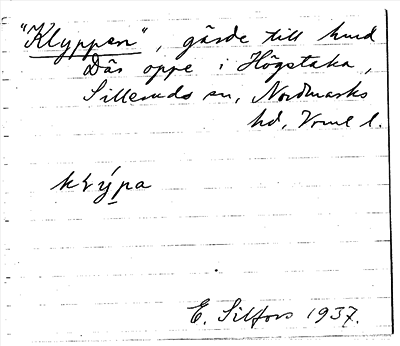 "Klyppen", gärde till hmd
Där oppe i Högstaka,
Silleruds sn, Nordmarks
hd, Vrml l.
klýpa
E. Silfors 1937.